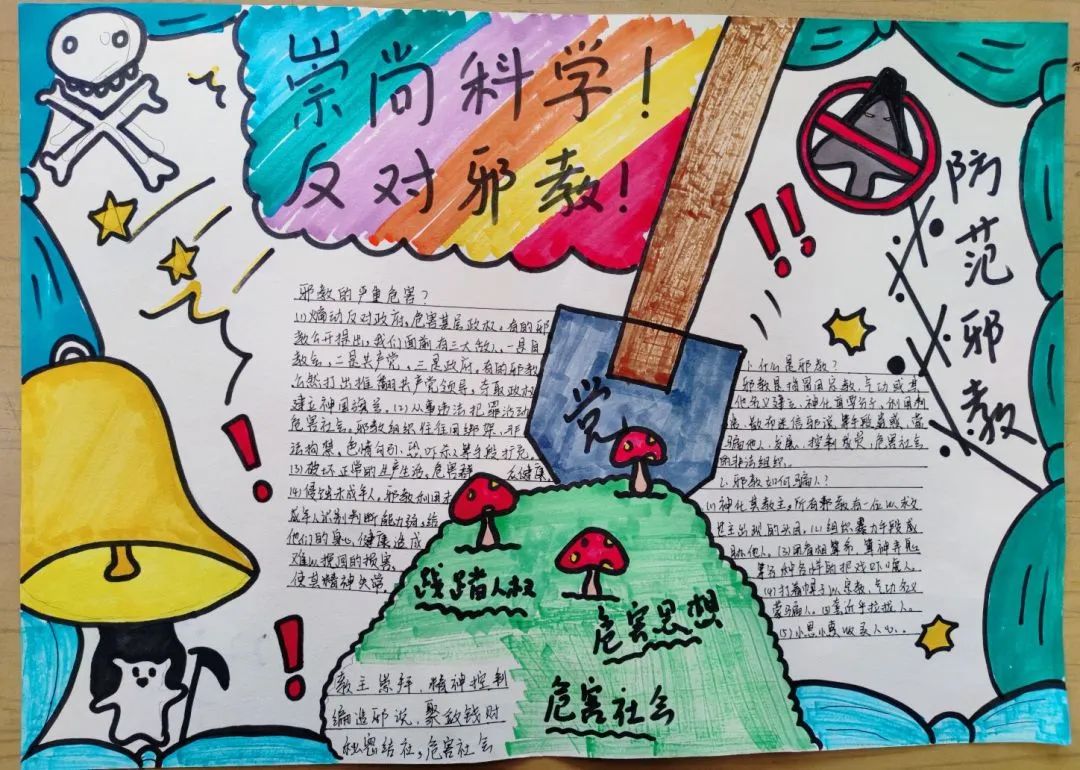 崇尚科学！
反对邪教！
防范邪教
党
邪教的严重危害？
(1)煽动反对政府，危害基层政权，有的邪
教公开提出，我们面前有三大敌人，一是自
教会，二是共产党，三是政府，有的邪教
公然打出推翻共产党领导，夺取政权
建立神国 (2)从事违法犯罪活动
危害社会。邪教组织往往用绑架，非
法拘禁，色情勾引，恐吓杀人等手段扩充，
(3)破坏正常的生产生活，危害群众健康
(4)侵蚀未成年人，邪教利用未
成年人识别判断能力弱，给
他们的身心健康造成
难以挽回的损害，
使其精神失常
1、什么是邪教？
邪教是指冒用宗教、气功或其
他名义建立、神化首要分子，利用制
造、散布迷信邪说等手段蛊惑、蒙
骗他人，发展、控制成员，危害社会
的非法组织。
2、邪教如何骗人？
(1)神化其教主，所有邪教有一位以救
世主出现的头目，(2)组织暴力手段威
胁他人。(3)用看相算命，算神弄鬼
等各种各样的把戏吓唬人。
(4)打着幌子以宗教、气功名义
蒙骗人。(5)套近乎拉拢人。
(5)小恩小惠收买人心。
践踏人权
危害思想
危害社会
教主崇拜、精神控制
编造邪说、聚敛钱财
秘密结社，危害社会